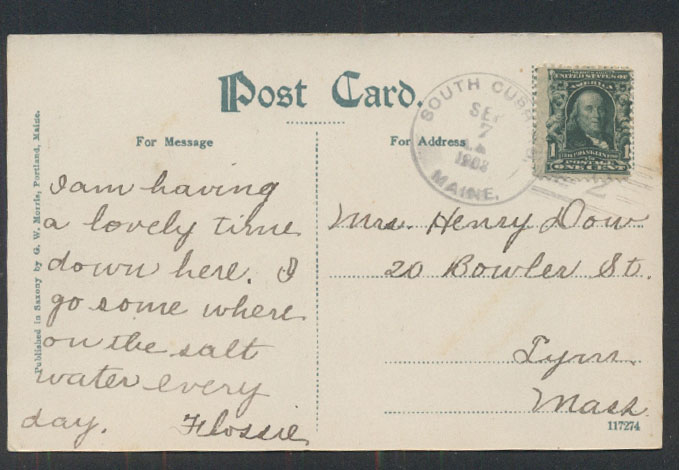 Post Card.
For Message
For Address
SOUTH CUSH
SEP
7
1908
MAINE.
UNITED STATES OF
AMERICA
1 1
FRANKLIN
POSTAGE
ONE CENT
I am having
a lovely time
down here. I
go some where
on the salt
water every
day. Flossie
Mrs. Henry Dow
20 Bowler St.
Lynn.
Mass
117274
Published in Saxony by G. W. Morris, Portland, Maine.